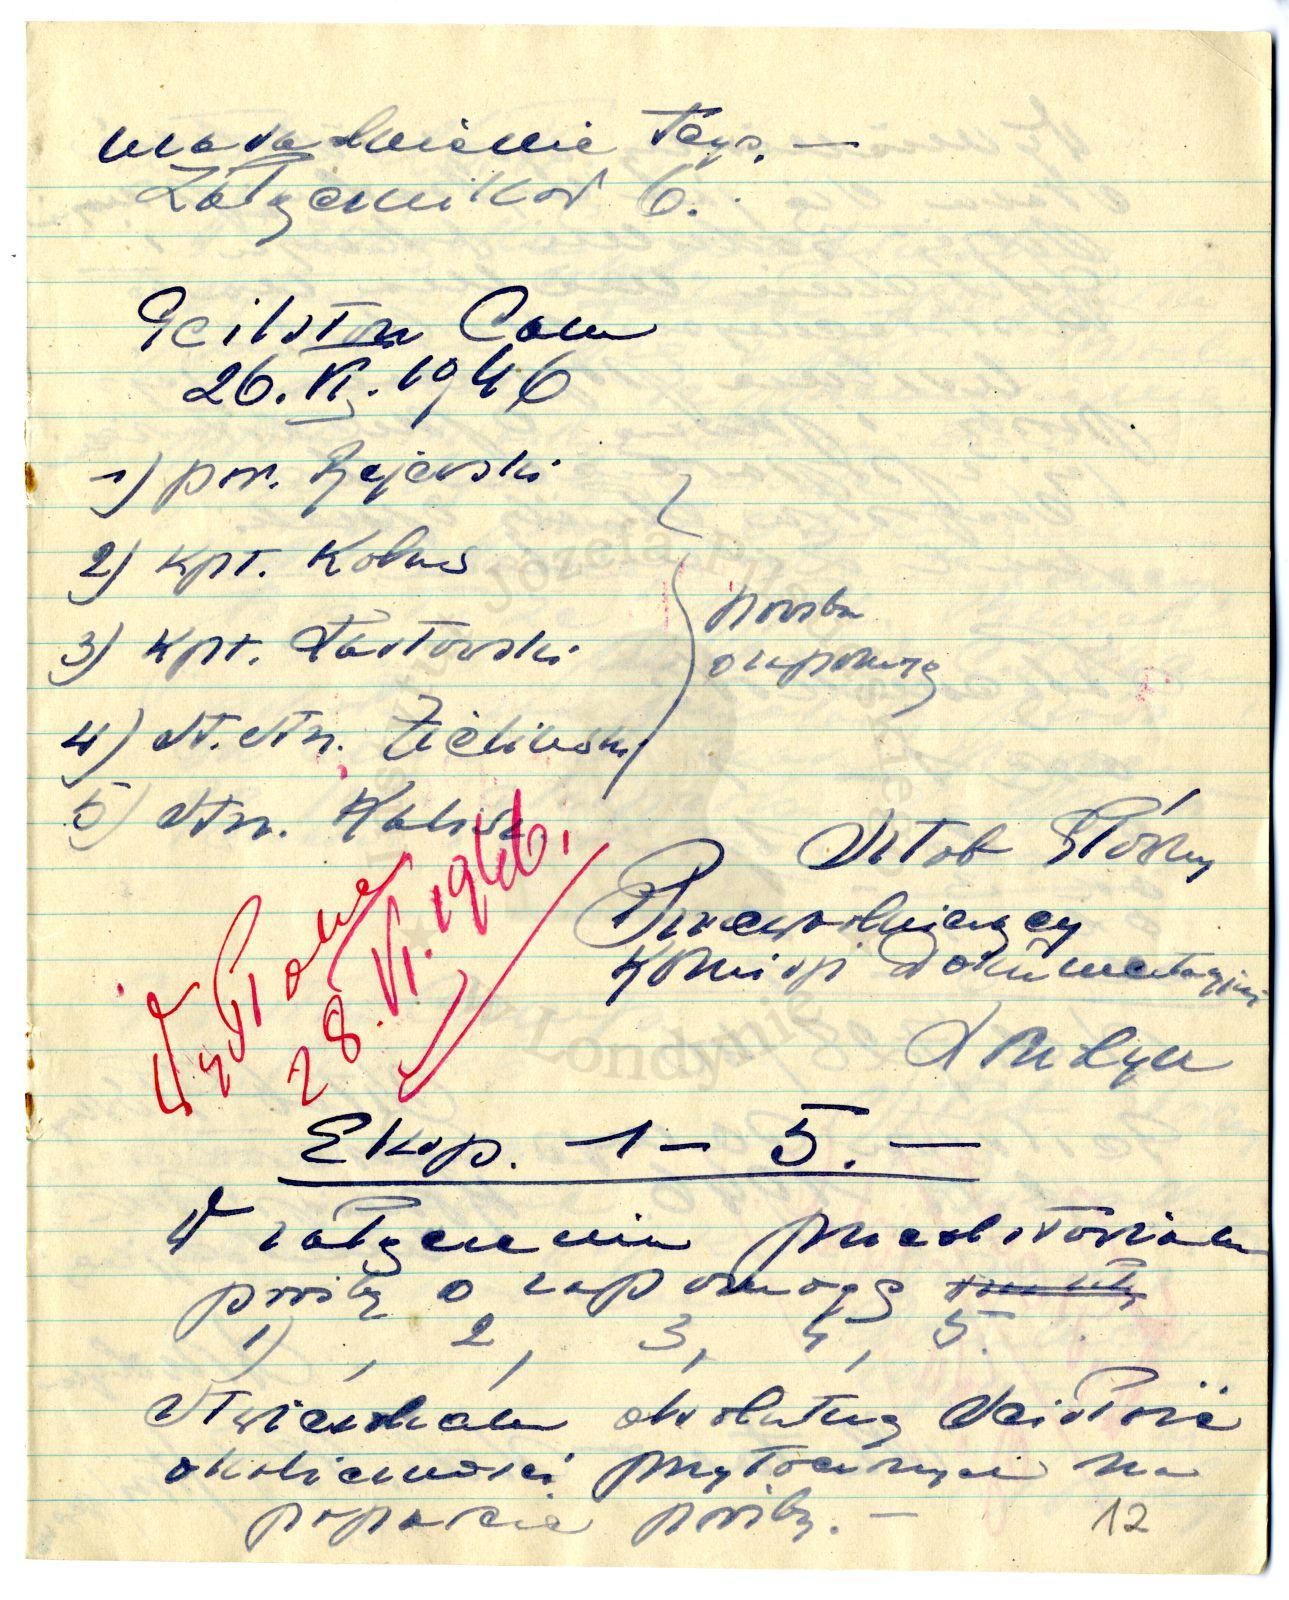 Załączników 6.
Geilston Cam
26.VI.1946
1) por. Żejerski
2) kpt. Kobus
3) kpt.
4) st. str. Zieliński
prośba
o zapomogę
5) str.
Sztab Główny
Przewodniczący
Komisji Dokumentacyjnej
Wysłane
28.VI.1946.
Eksp. 1 – 5. —
W załączeniu przedstawiam
prośby o zapomogę
1), 2, 3, 4, 5.
Stwierdzam absolutną ścisłość
okoliczności przytoczonych na
poparcie prośby. —
12
Józefa Piłsudskiego
w Londynie